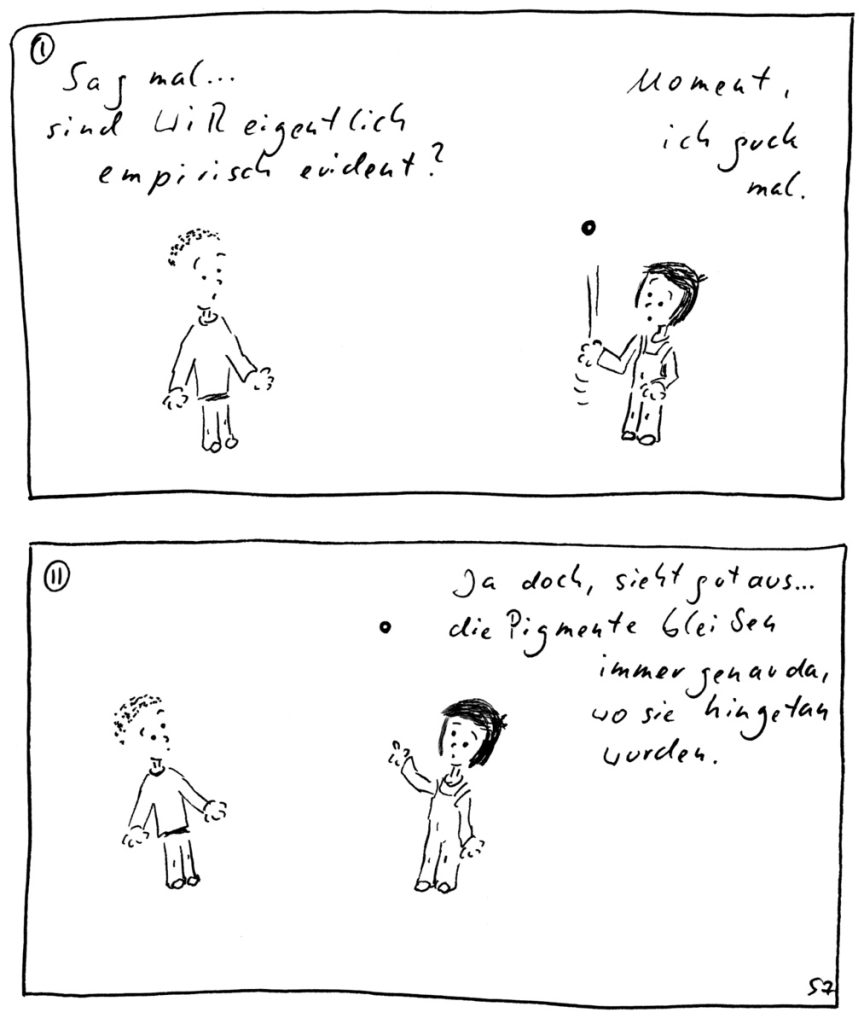 I
Sag mal...
sind WIR eigentlich
empirisch evident?
Moment,
ich guck
mal.
II
Ja doch, sieht gut aus...
die Pigmente bleiben
immer genau da,
wo sie hingetan
wurden.